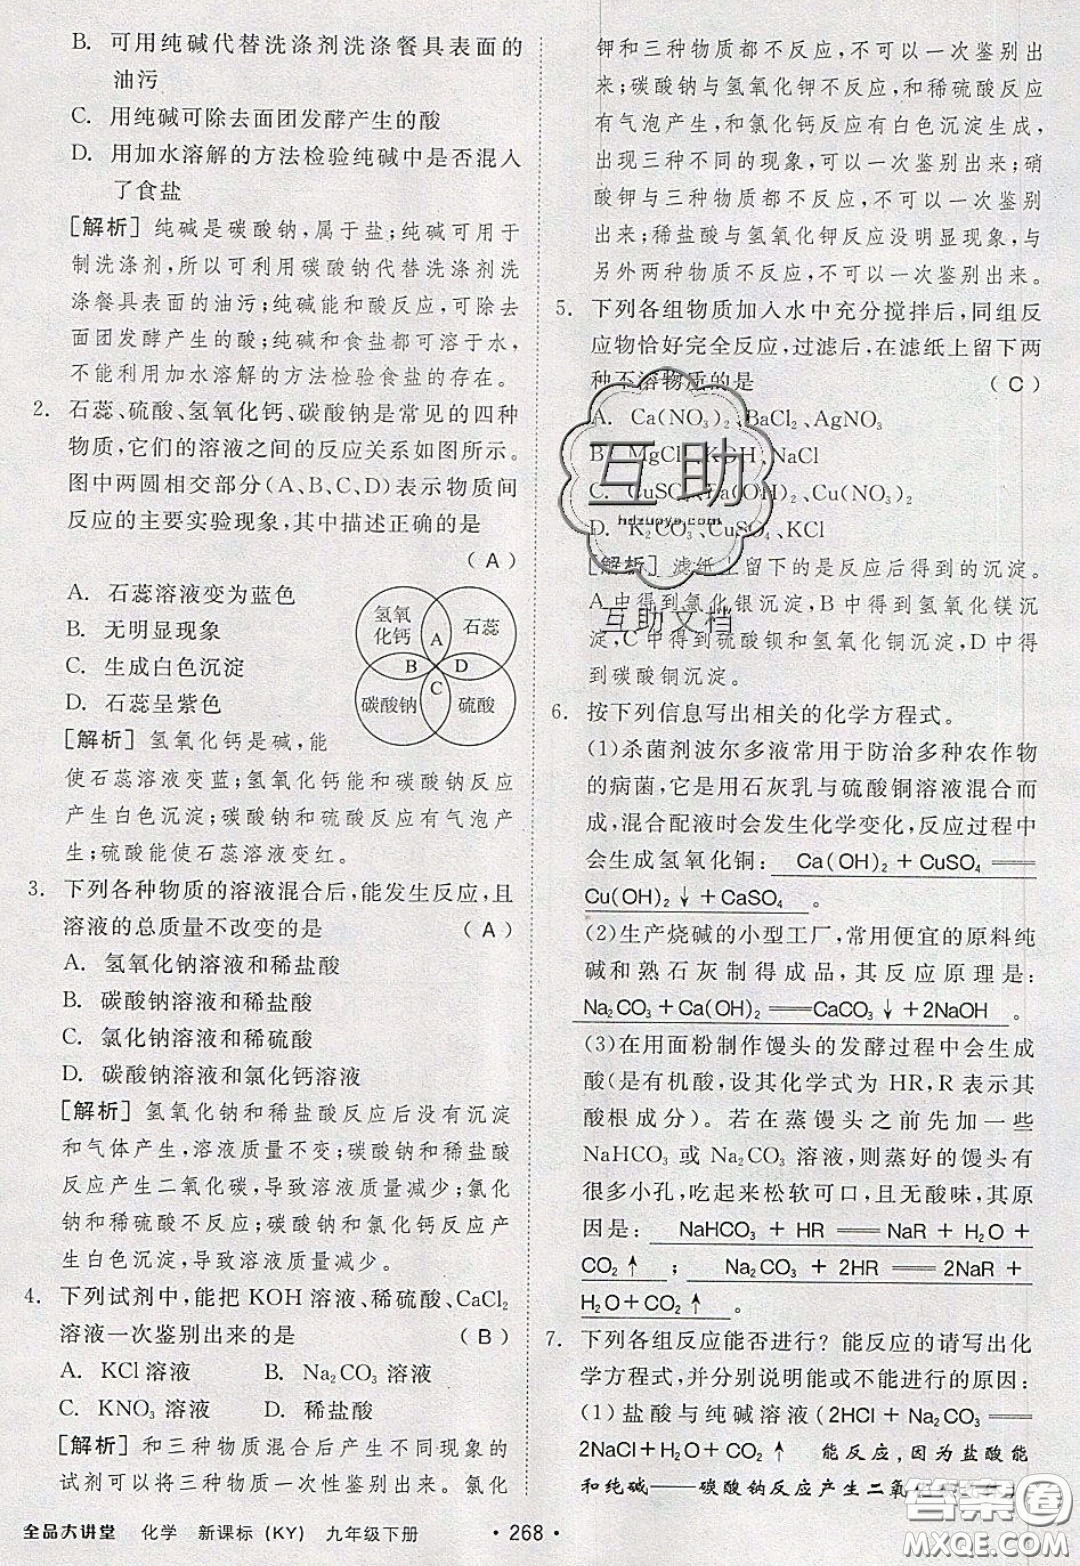 B. 可用纯碱代替洗涤剂洗涤餐具表面的
油污
C. 用纯碱可除去面团发酵产生的酸
D. 用加水溶解的方法检验纯碱中是否混入
了食盐
[解析] 纯碱是碳酸钠,属于盐;纯碱可用于
制洗涤剂,所以可利用碳酸钠代替洗涤剂洗
涤餐具表面的油污;纯碱能和酸反应,可除去
面团发酵产生的酸;纯碱和食盐都可溶于水,
不能利用加水溶解的方法检验食盐的存在。
2. 石蕊、硫酸、氢氧化钙、碳酸钠是常见的四种
物质,它们的溶液之间的反应关系如图所示。
图中两圆相交部分(A、B、C、D)表示物质间
反应的主要实验现象,其中描述正确的是
( A )
A. 石蕊溶液变为蓝色
B. 无明显现象
C. 生成白色沉淀
D. 石蕊呈紫色
氢氧
化钙
石蕊
A
B
D
C
碳酸钠
硫酸
[解析] 氢氧化钙是碱,能
使石蕊溶液变蓝;氢氧化钙能和碳酸钠反应
产生白色沉淀;碳酸钠和硫酸反应有气泡产
生;硫酸能使石蕊溶液变红。
3. 下列各种物质的溶液混合后,能发生反应,且
溶液的总质量不改变的是 ( A )
A. 氢氧化钠溶液和稀盐酸
B. 碳酸钠溶液和稀盐酸
C. 氯化钠溶液和稀硫酸
D. 碳酸钠溶液和氯化钙溶液
[解析] 氢氧化钠和稀盐酸反应后没有沉淀
和气体产生,溶液质量不变;碳酸钠和稀盐酸
反应产生二氧化碳,导致溶液质量减少;氯化
钠和稀硫酸不反应;碳酸钠和氯化钙反应产
生白色沉淀,导致溶液质量减少。
4. 下列试剂中,能把 KOH 溶液、稀硫酸、CaCl₂
溶液一次鉴别出来的是 ( B )
A. KCl 溶液 B. Na₂CO₃ 溶液
C. KNO₃ 溶液 D. 稀盐酸
[解析] 和三种物质混合后产生不同现象的
试剂可以将三种物质一次性鉴别出来。氯化
钾和三种物质都不反应,不可以一次鉴别出
来;碳酸钠与氢氧化钾不反应,和稀硫酸反应
有气泡产生,和氯化钙反应有白色沉淀生成,
出现三种不同的现象,可以一次鉴别出来;硝
酸钾与三种物质都不反应,不可以一次鉴别
出来;稀盐酸与氢氧化钾反应没明显现象,与
另外两种物质不反应,不可以一次鉴别出来。
5. 下列各组物质加入水中充分搅拌后,同组反
应物恰好完全反应,过滤后,在滤纸上留下两
种不溶物质的是 ( C )
A. Ca(NO₃)₂、BaCl₂、AgNO₃
B. MgCl₂、KOH、NaCl
C. CuSO₄、Ba(OH)₂、Cu(NO₃)₂
D. K₂CO₃、CuSO₄、KCl
[解析] 滤纸上留下的是反应后得到的沉淀。
A 中得到氯化银沉淀,B 中得到氢氧化镁沉
淀,C 中得到硫酸钡和氢氧化铜沉淀,D 中得
到碳酸铜沉淀。
6. 按下列信息写出相关的化学方程式。
(1)杀菌剂波尔多液常用于防治多种农作物
的病菌,它是用石灰乳与硫酸铜溶液混合而
成,混合配液时会发生化学变化,反应过程中
会生成氢氧化铜: Ca(OH)₂ + CuSO₄ ══
Cu(OH)₂↓ + CaSO₄ 。
(2)生产烧碱的小型工厂,常用便宜的原料纯
碱和熟石灰制得成品,其反应原理是:
Na₂CO₃ + Ca(OH)₂ ══ CaCO₃↓ + 2NaOH 。
(3)在用面粉制作馒头的发酵过程中会生成
酸(是有机酸,设其化学式为 HR,R 表示其
酸根成分)。若在蒸馒头之前先加一些
NaHCO₃ 或 Na₂CO₃ 溶液,则蒸好的馒头有
很多小孔,吃起来松软可口,且无酸味,其原
因是: NaHCO₃ + HR ══ NaR + H₂O +
CO₂↑ ; Na₂CO₃ + 2HR ══ 2NaR +
H₂O + CO₂↑ 。
7. 下列各组反应能否进行?能反应的请写出化
学方程式,并分别说明能或不能进行的原因:
(1) 盐酸与纯碱溶液(2HCl + Na₂CO₃ ══
2NaCl + H₂O + CO₂↑ 能反应,因为盐酸能
和纯碱——碳酸钠反应产生二氧化
互助
hdzuoye.com
互助文档
答案圈
全品大讲堂 化学 新课标 (KY) 九年级下册 · 268 ·